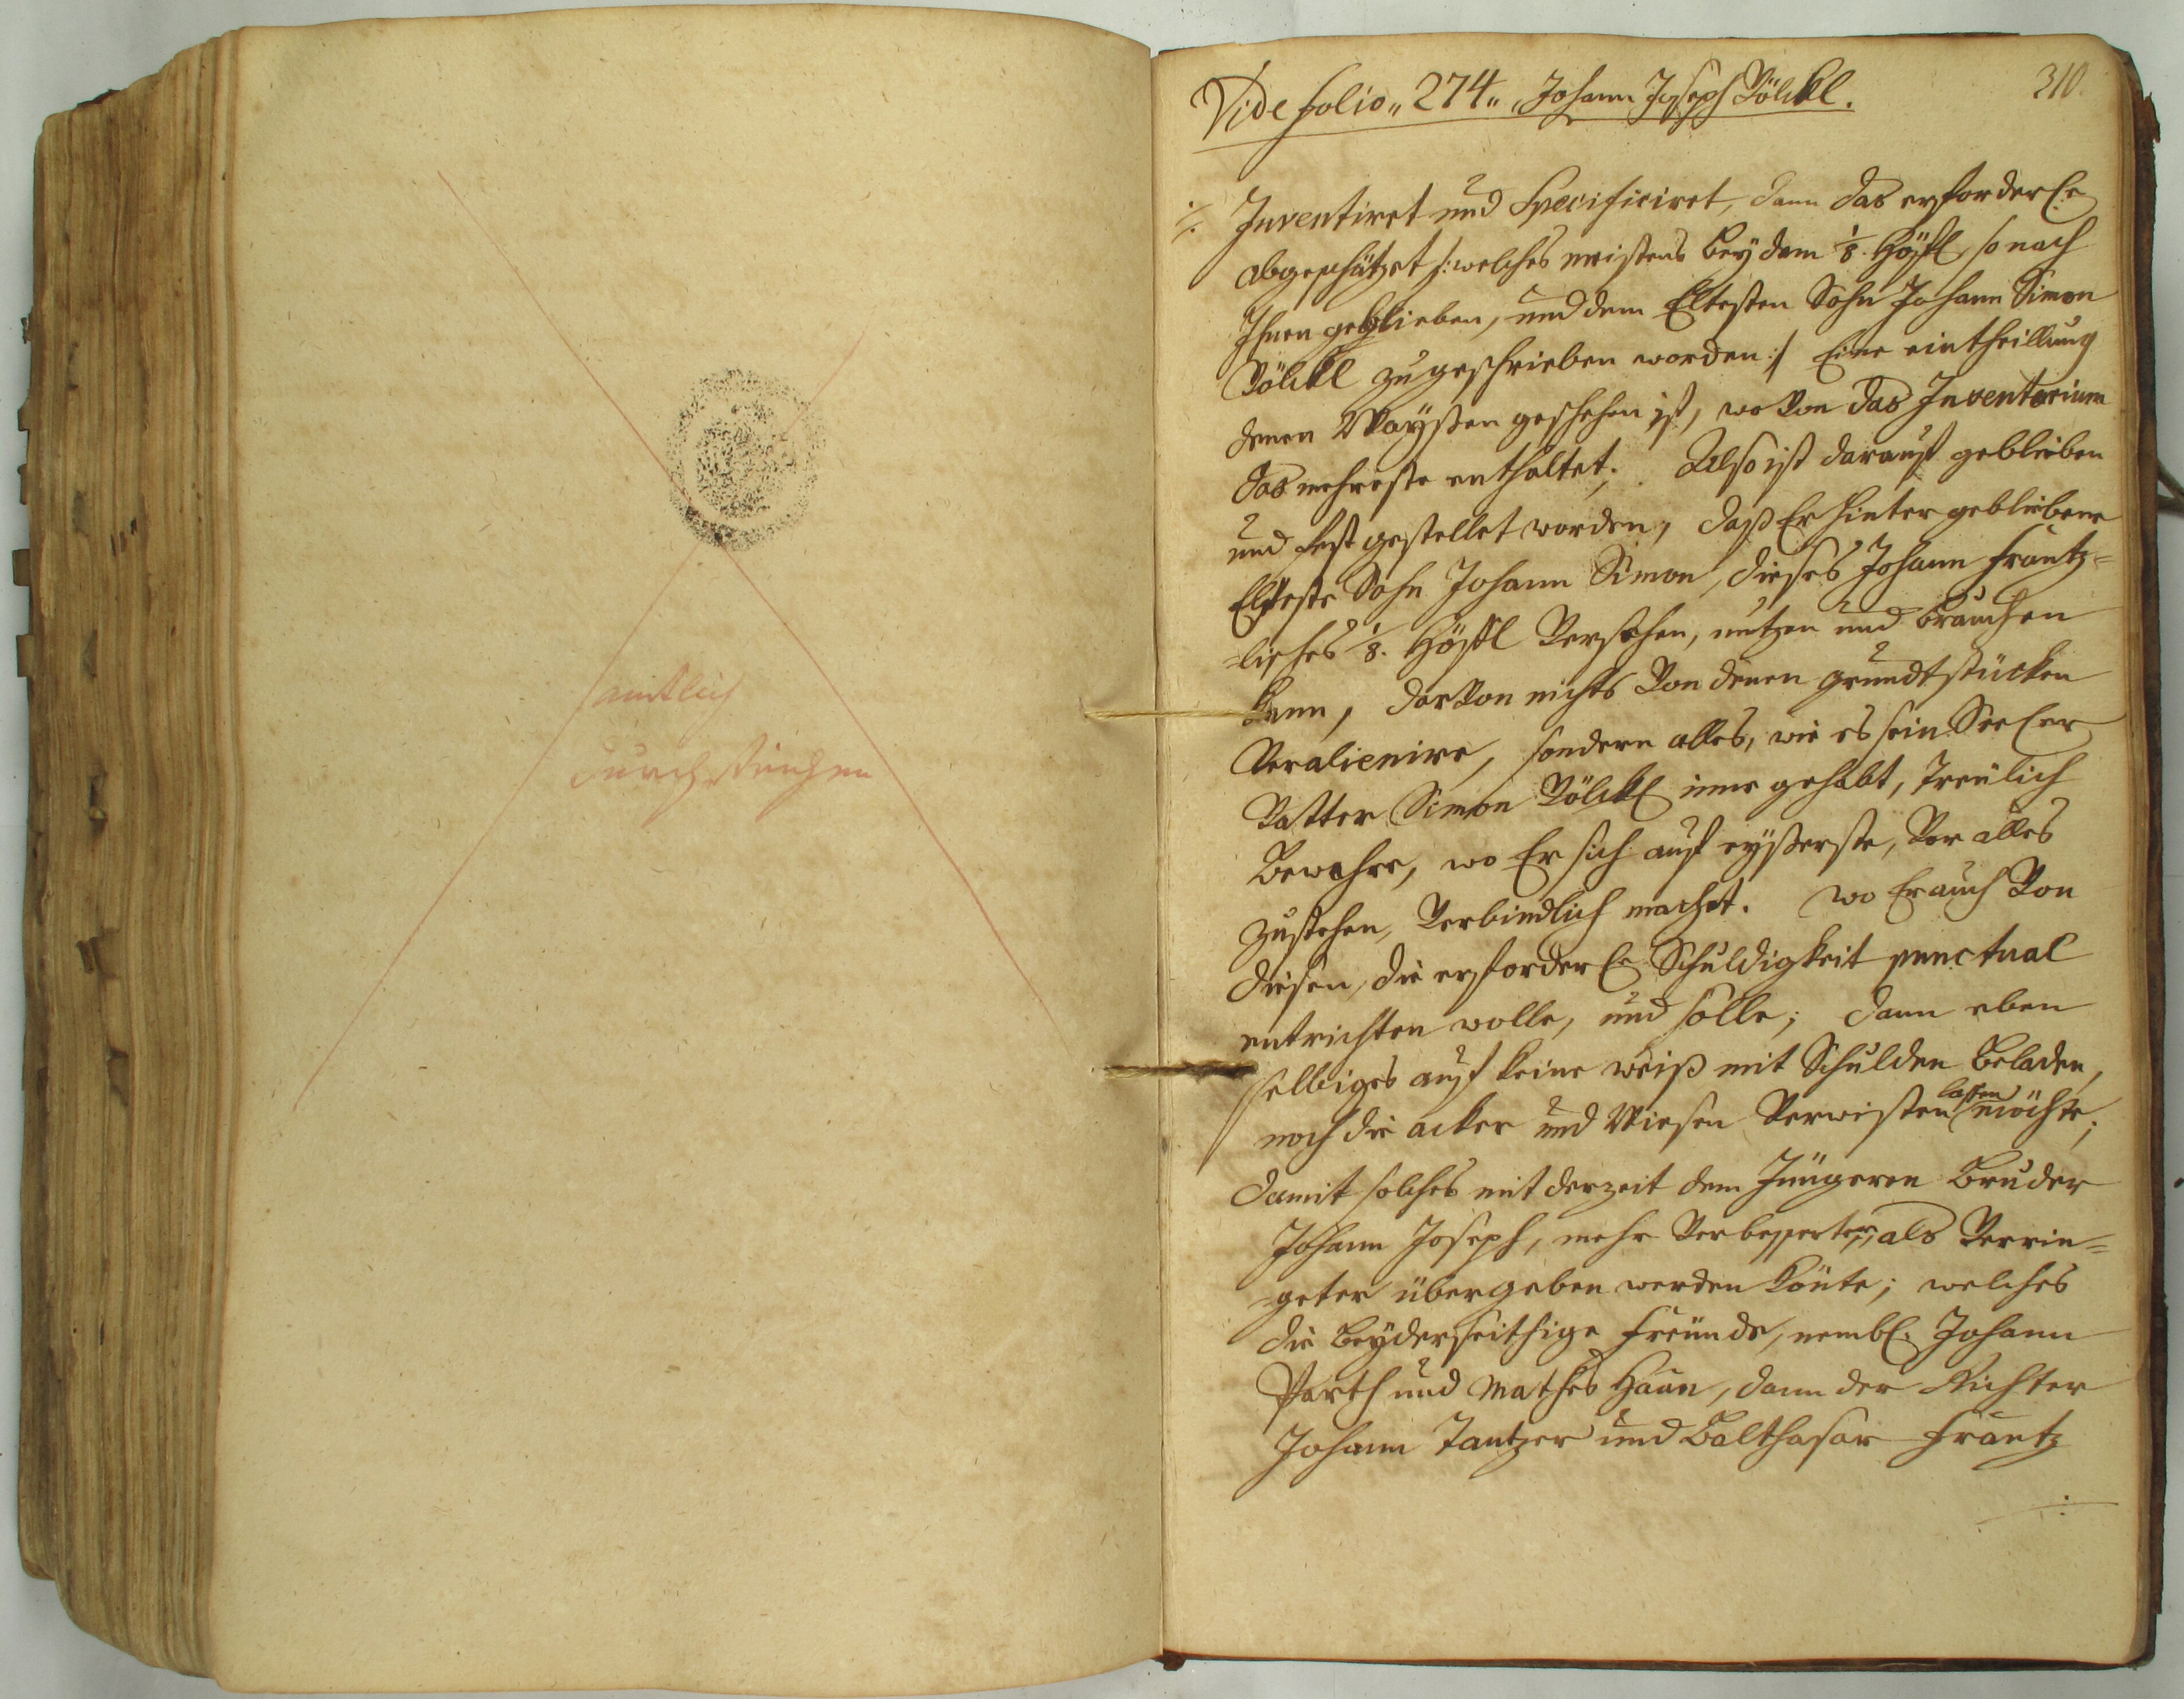 amtlich
durchstrichen
Vide folio „ 274 „ Johann Joseph Völckl.
310.
Inventiret und Specificiret, dann das erforderl.e
abgeschätzet /: welches meistens bey dem 1/8. Höffl, so nach
Ihnen geblieben, und dem Eltesten Sohn Johann Simon
Völckl zugeschrieben worden :/ Eine eintheillung
denen Waysen geschehen ist, wo von das Inventarium
das mehreste enthaltet; Also ist darauf geblieben
und fest gestellet worden, daß Er hinter gebliebene
Elteste Sohn Johann Simon, dieses Johann Frantz=
=lisches 1/8. Höffl Versehen, nutzen und brauchen
kann, darvon nichts Von denen grundtstücken
Veralienire, sondern alles, wie es sein Seel.er
Vatter Simon Völckl inne gehabt, treülich
Bewahre, wo Er sich auf eyserste, Vor alles
zustehen, Verbindlich machet. wo Er auch Von
diesen, die erforderl.e Schuldigkeit punctual
entrichten wolle, und solle; dann eben
selbiges auf keine weiß mit Schulden beladen,
noch die acker und Wiesen Verwisten lassen möchte;
damit solches mit der zeit dem Jüngeren Bruder
Johann Joseph, mehr Verbesserter, als Verrin=
=geter übergeben werden könte; welches
die Beyderseithige Freünde, nembl. Johann
Parth und Mathes Haan, dann der Richter
Johann Tantzer und Balthasar Frantz